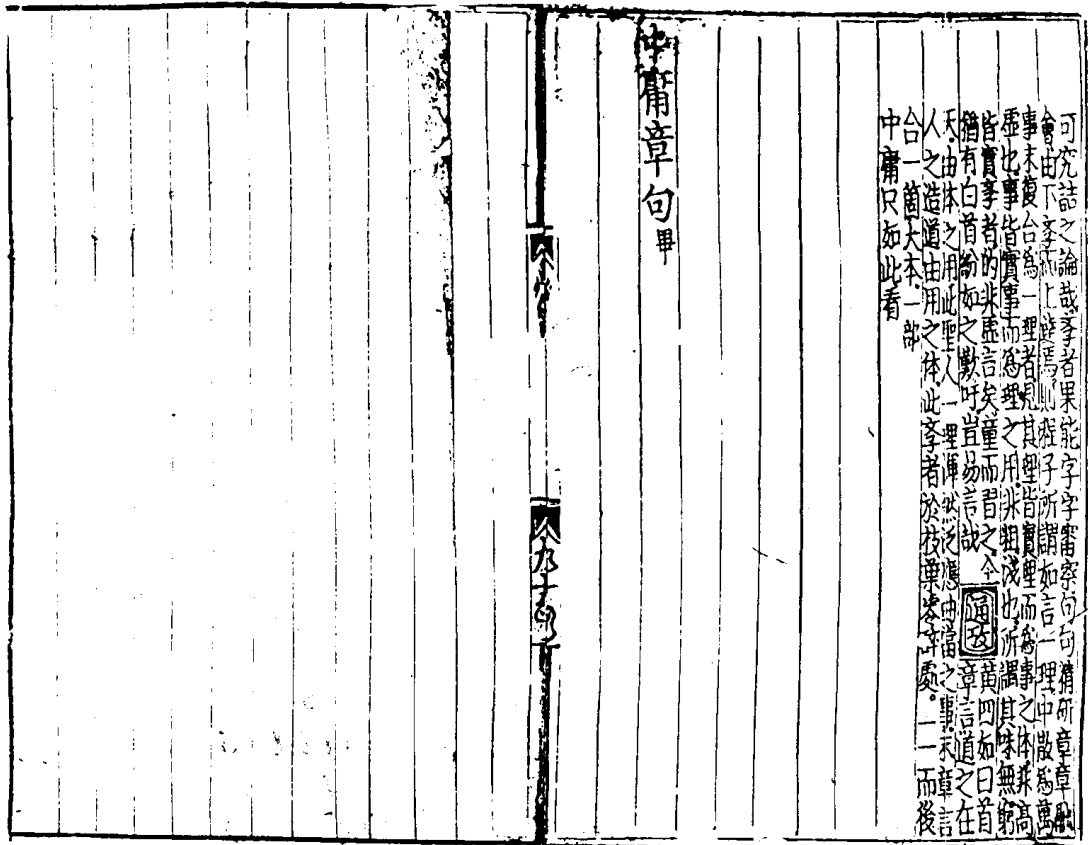 可究詰之論哉斈者果能字字審察句句精研章章融
會由下斈而上逹焉則程子所謂如言一理中散為萬
事末復合為一理者見其理皆實理而為事之体非高
虛也事皆實事而為理之用非粗淺也所謂其味無窮
皆實斈者的非虛言矣童而習之今
猶有白首紛如之歎吁豈易言哉
通攷
黃四如曰首
章言道之在
天由体之用此聖人一理渾然泛應曲當之事末章言
人之造道由用之体此斈者於枝葉處一一而後
合一箇大本一部
中庸只如此看
中庸章句畢